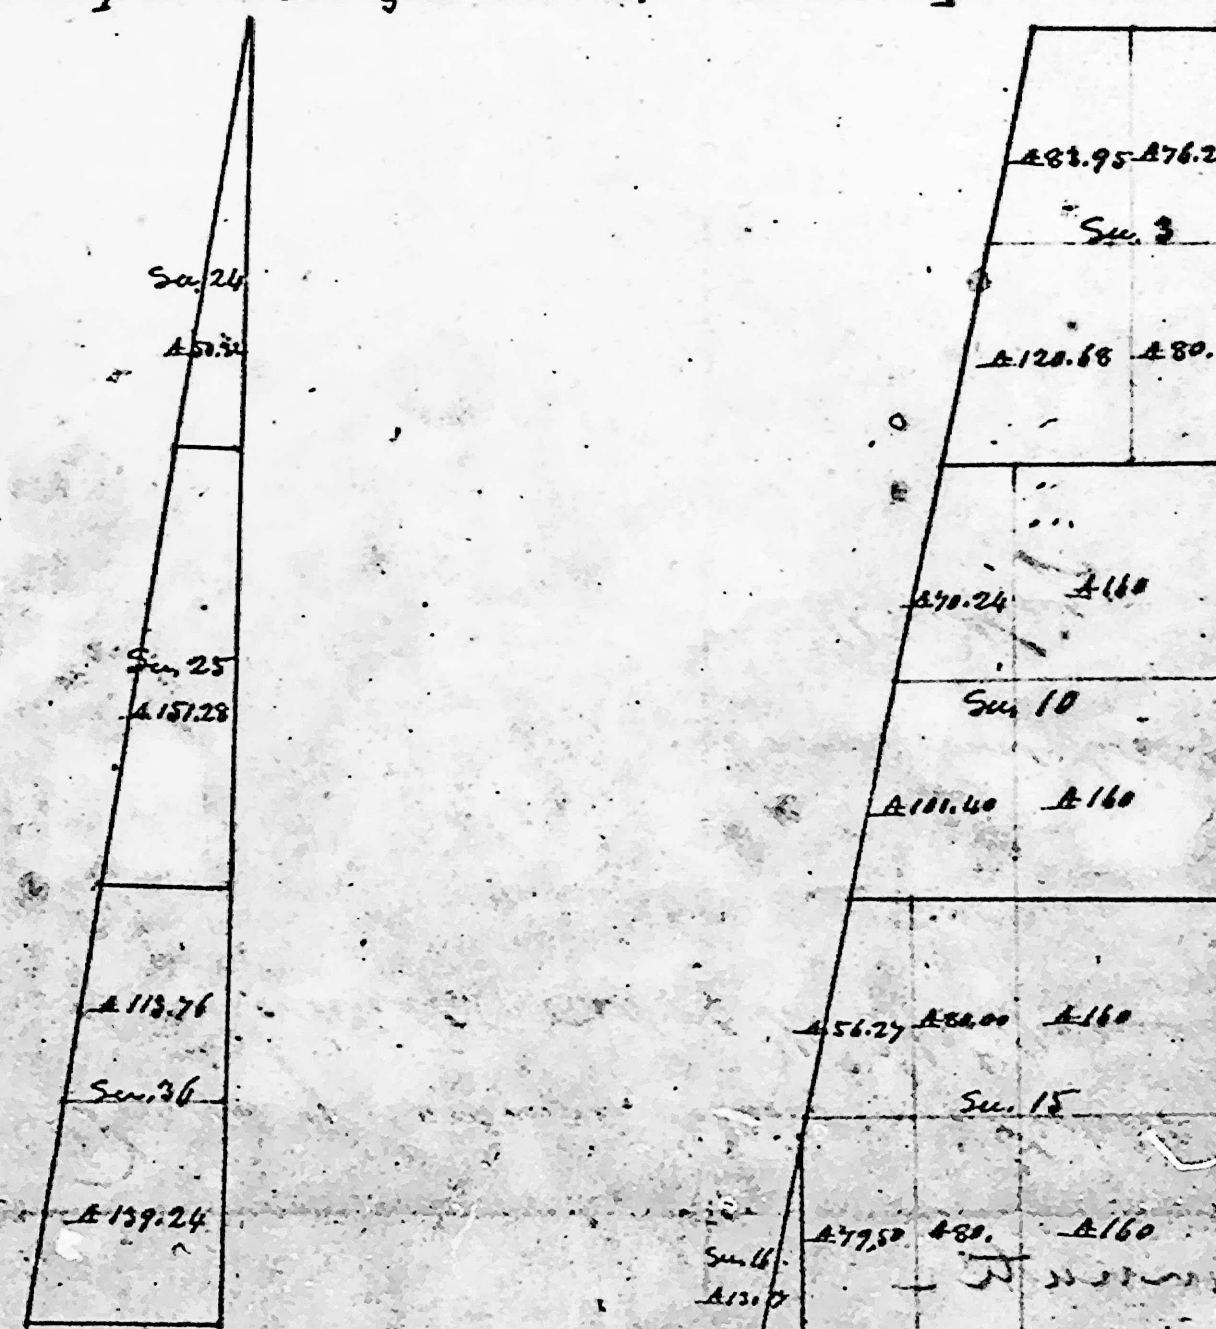 Sec. 24
Sec. 25
A 151.28
A 113.76
Sec. 36
A 139.24
A 83.95 A 76.2
Sec. 3
A 120.68 A 80.
A 70.24 A 160
Sec. 10
A 101.40 A 160
A 56.27 A 80.00 A 160
Sec. 15
A 79.50 A 80. A 160
Sec. 16